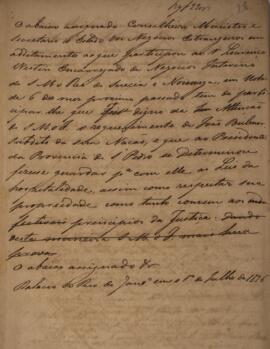 O abaixo assignado Conselheiro Ministro e
Secretario d'Estado dos Negocios Estrangeiros em
additamento ao que participou ao Sr. Lourenço
Westin Encarregado de Negocios
de S. M. El Rei de Suecia e Noruega em Nota
de 6 do mez proximo passado tem de parti-
cipar lhe que digna das Attenção
de S. M. I. o requerimento de João
Subdito da sua Nação, e que ao Presidente
da Provincia de S. Pedro se Determinou
fizesse guardar pa. com elle as Leis da
hospitalidade, assim como respeitar sua
propriedade, como tanto convem aos
principios da Justiça.
desta maneira S. M. I. mais huma
prova
O abaixo assignado &
Palacio do Rio de Janro. em o 1º de Julho de 1826